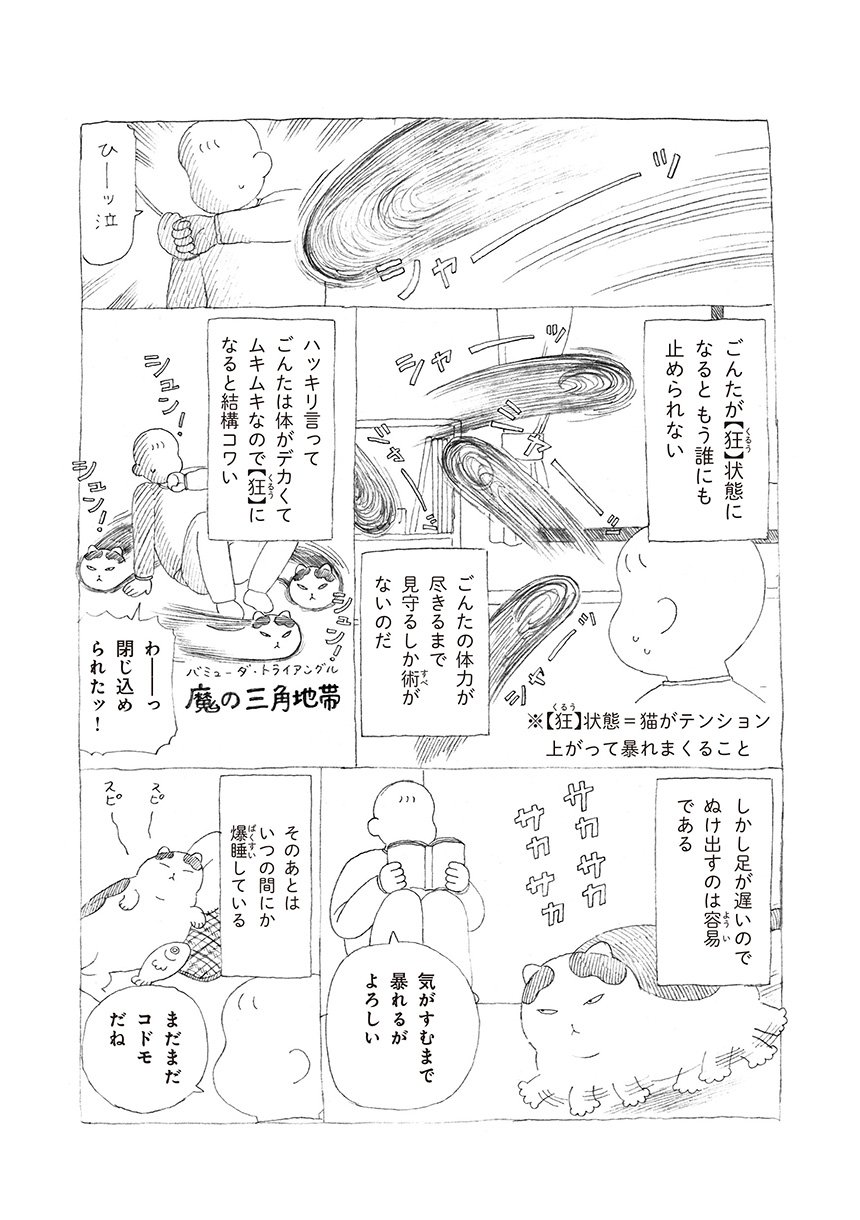 シャーーーッ
ひーーッ泣
ごんたが【狂】状態に
くるう
なると もう誰にも
止められない
シャーーッ
シャーーッ
シャーッ
ごんたの体力が
尽きるまで
見守るしか術が
すべ
ないのだ
※【狂】状態=猫がテンション
くるう
上がって暴れまくること
ハッキリ言って
ごんたは体がデカくて
ムキムキなので【狂】に
くるう
なると結構コワい
シュン!
シュン!
シュン!
バミューダ・トライアングル
魔の三角地帯
わーーっ
閉じ込め
られたッ!
しかし足が遅いので
ぬけ出すのは容易
ようい
である
サカサカ
サカサカ
気がすむまで
暴れるが
よろしい
そのあとは
いつの間にか
爆睡している
ばくすい
スピ
スピ
まだまだ
コドモ
だね